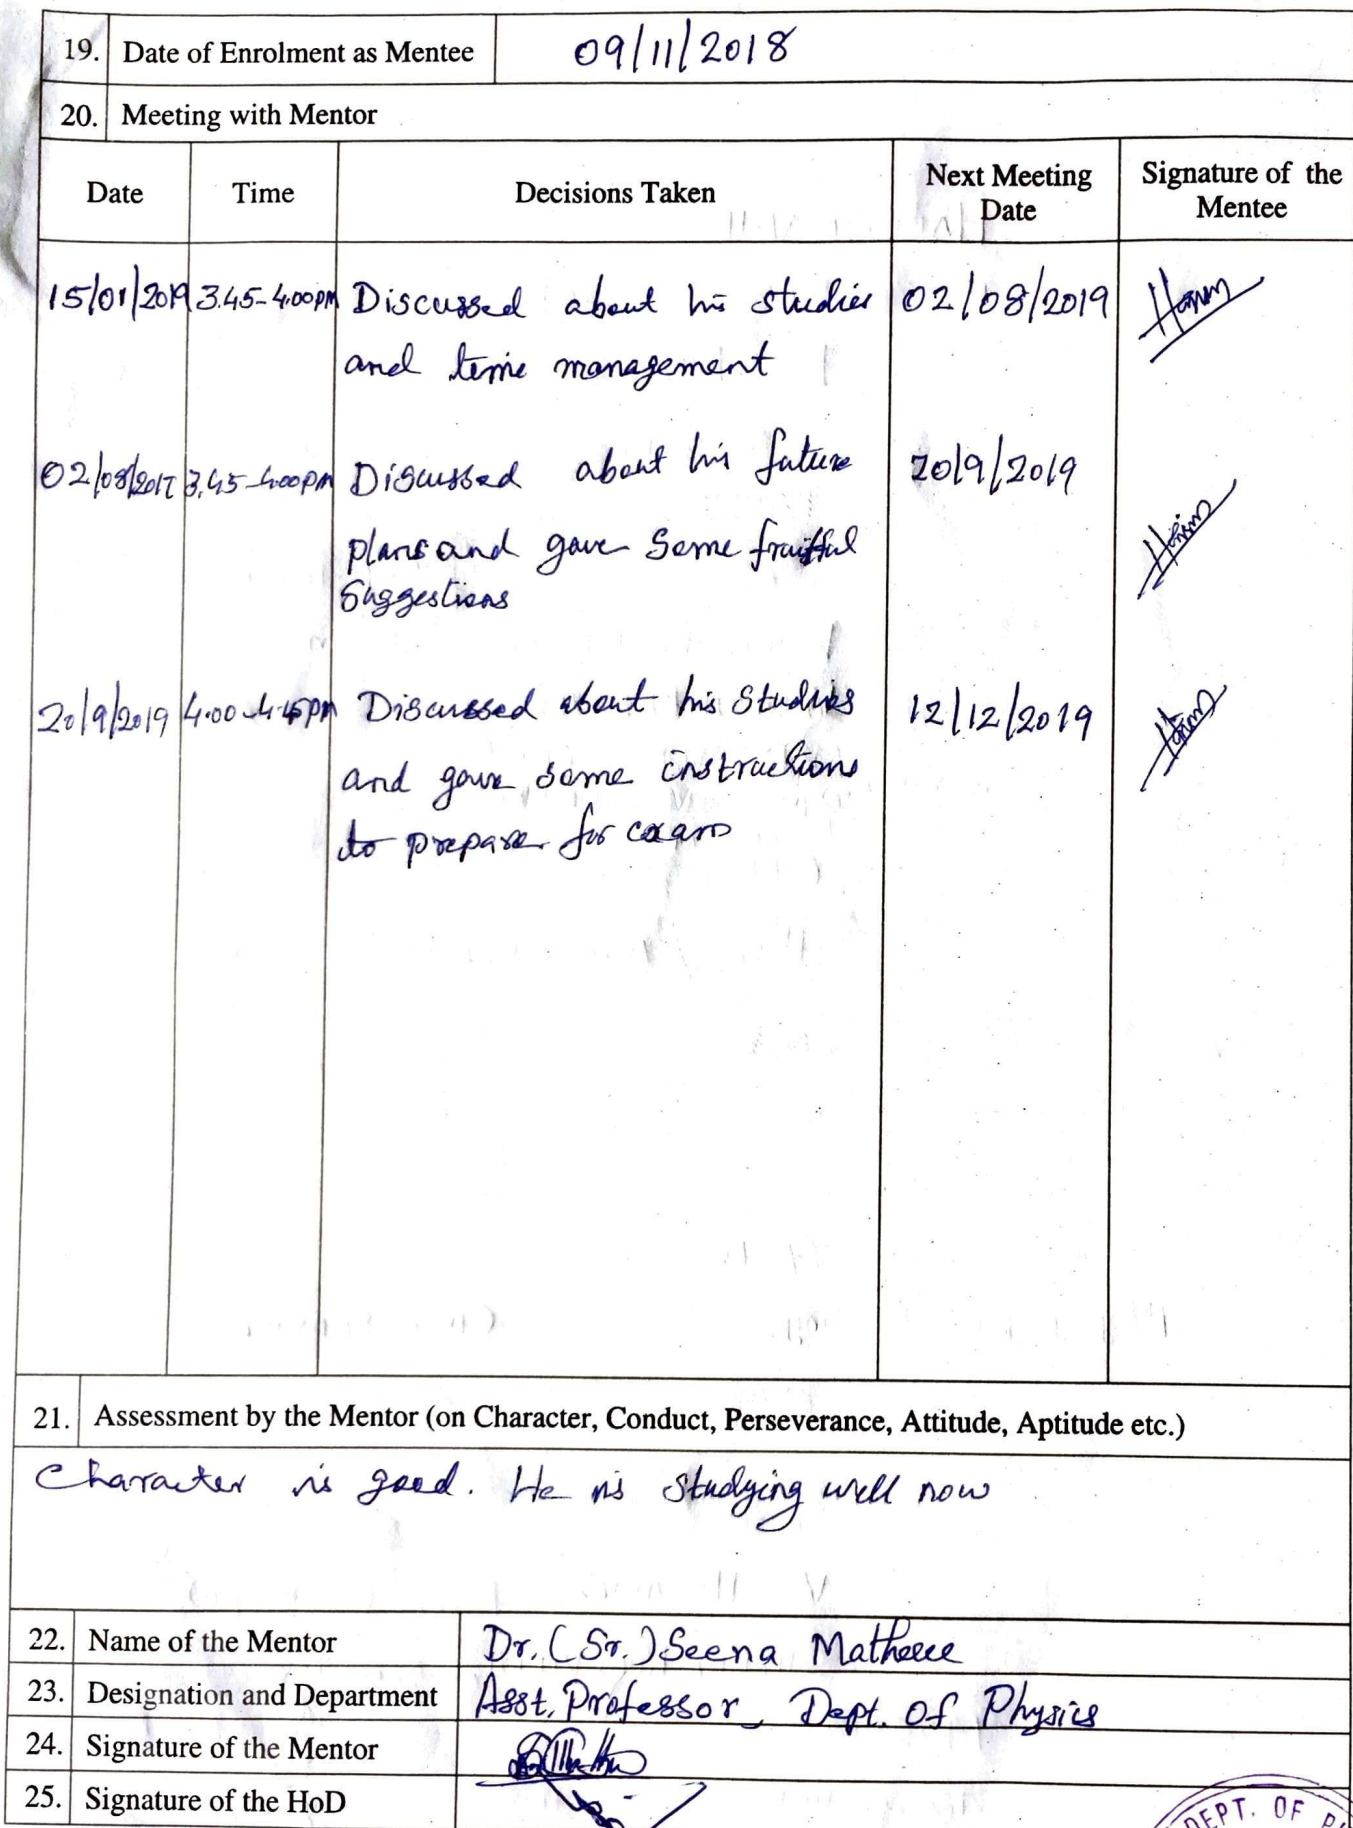 19. Date of Enrolment as Mentee 09/11/2018
20. Meeting with Mentor
Date Time Decisions Taken Next Meeting Date Signature of the Mentee
15/01/2019 3.45-4.00pm Discussed about his studies 02/08/2019
and time management
02/08/2019 3.45-4.00pm Discussed about his future 20/9/2019
plans and gave Some fruitful
Suggestions
20/9/2019 4.00-4.15pm Discussed about his Studies 12/12/2019
and gave some instructions
to prepare for exam
21. Assessment by the Mentor (on Character, Conduct, Perseverance, Attitude, Aptitude etc.)
Character is good. He is studying well now
22. Name of the Mentor Dr. (Sr.) Seena Mathew
23. Designation and Department Asst. Professor, Dept. Of Physics
24. Signature of the Mentor
25. Signature of the HoD
DEPT. OF